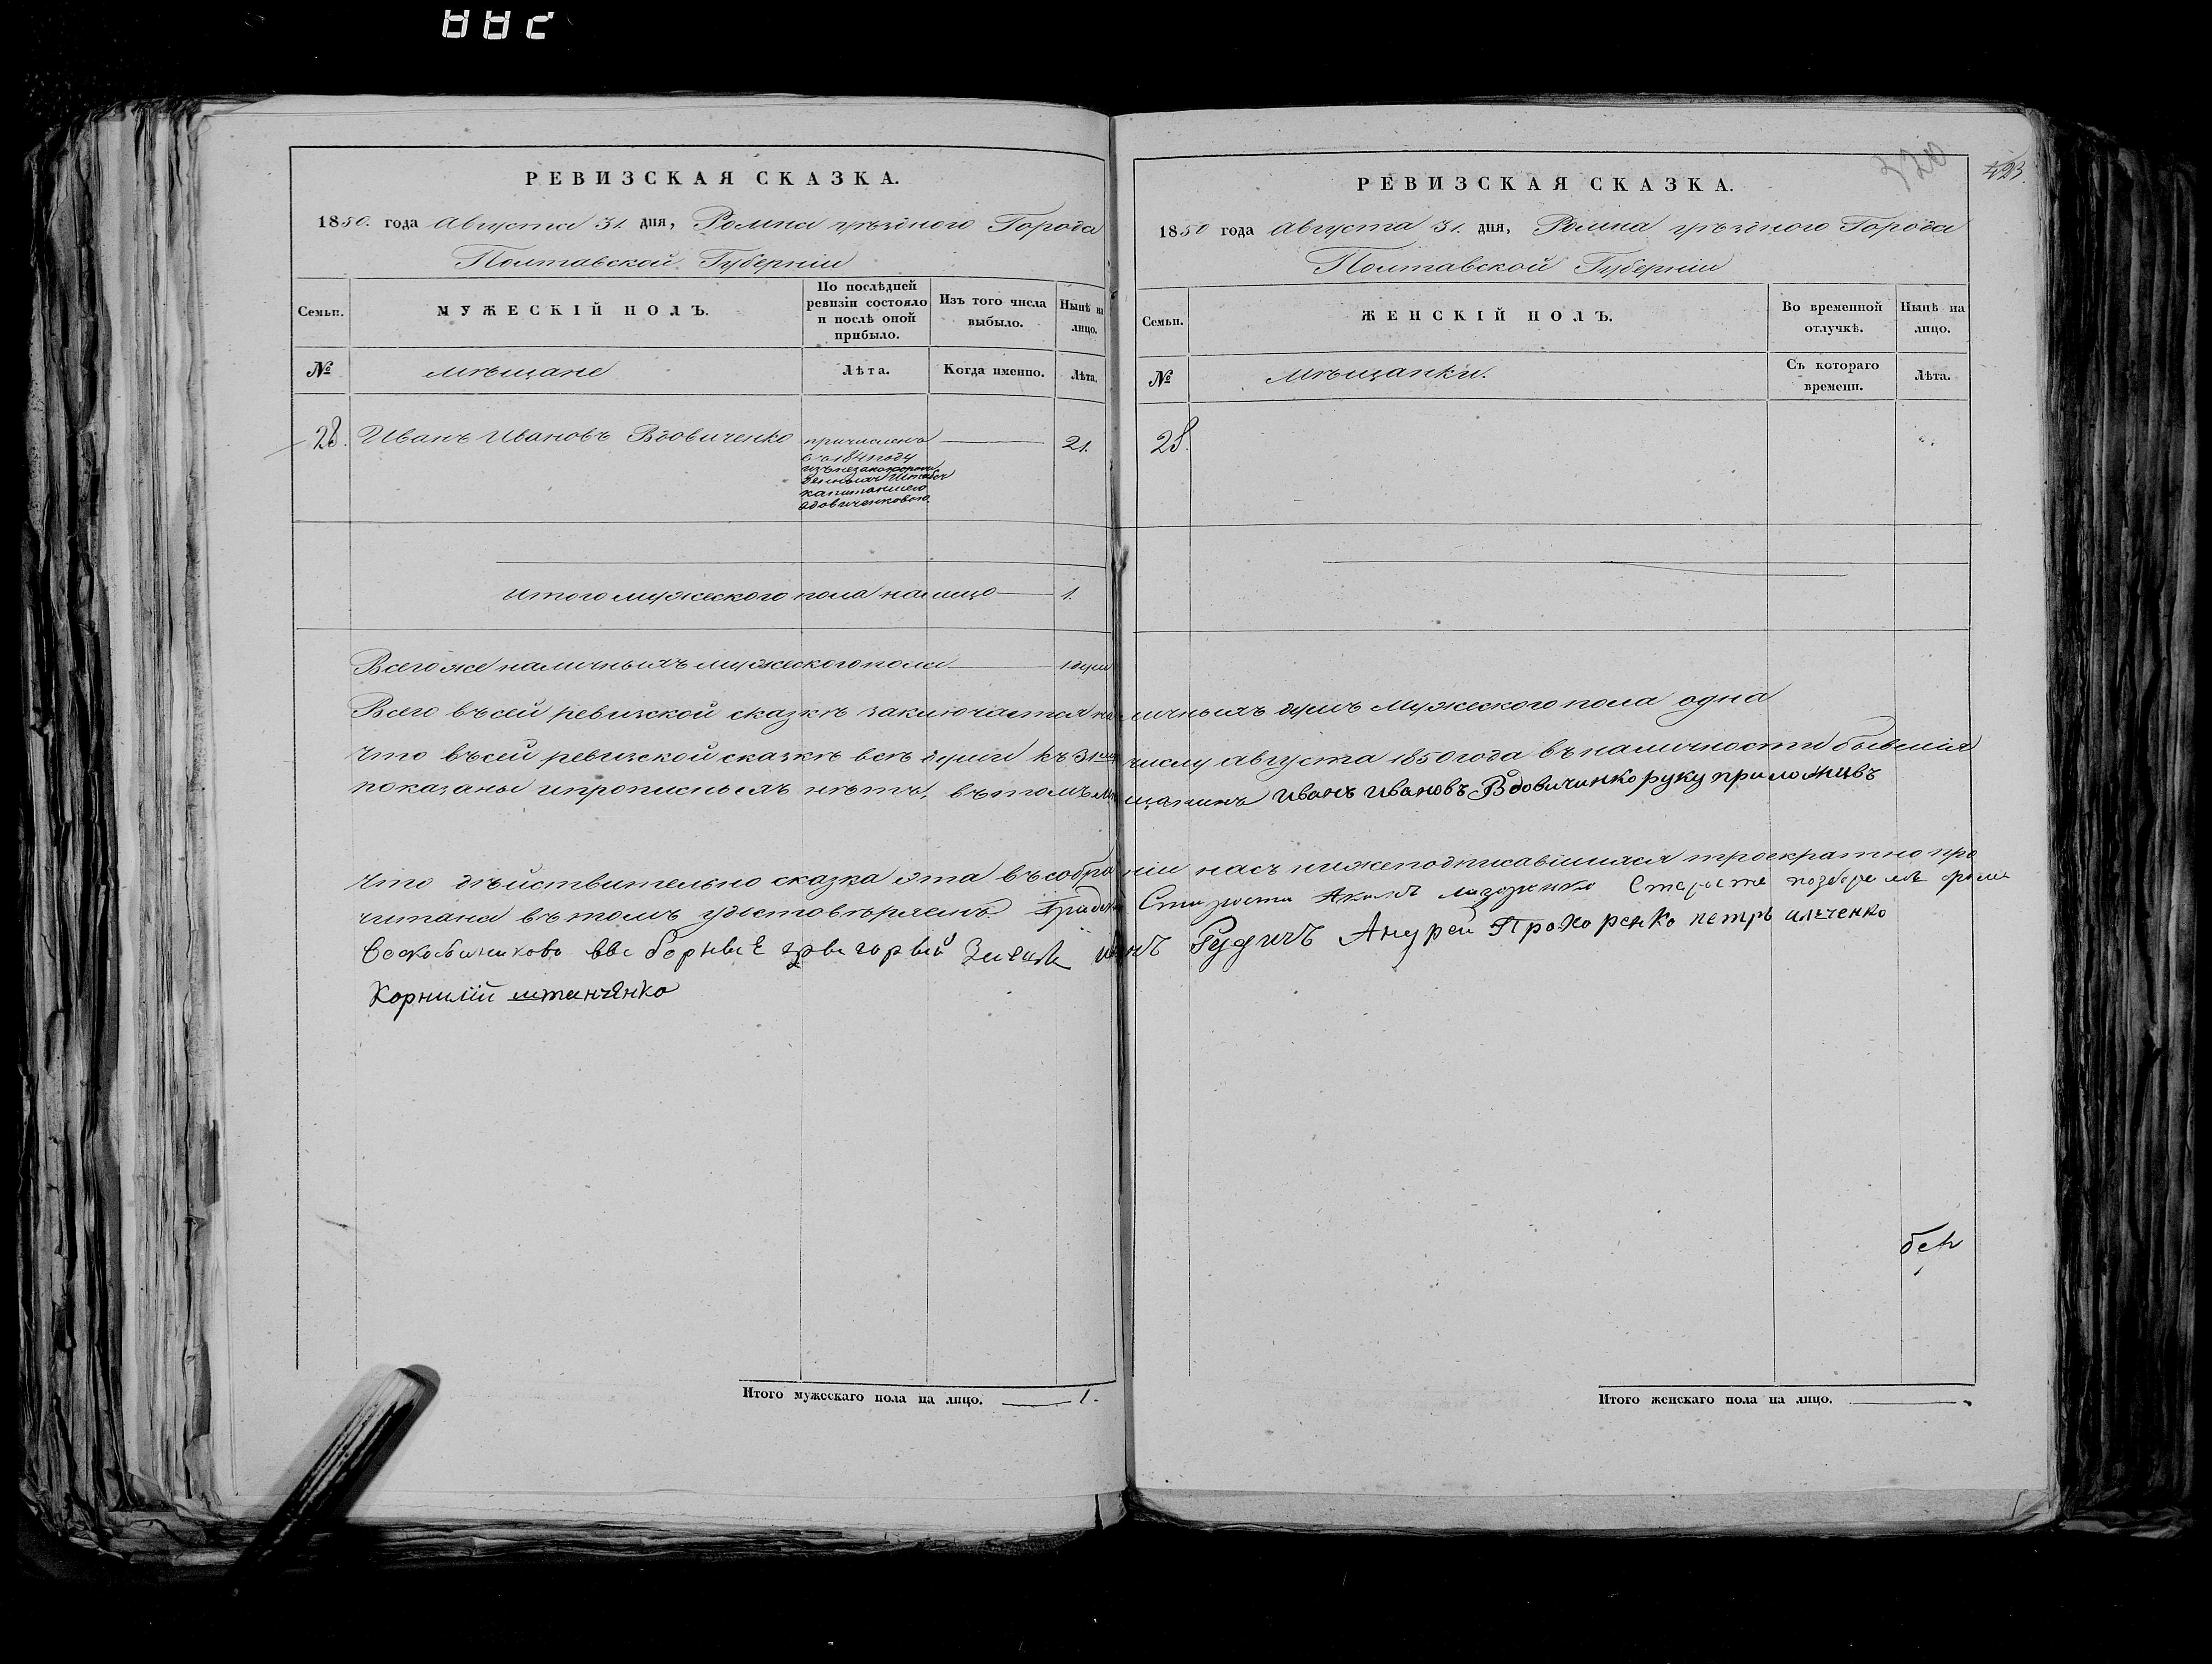 320
423.
РЕВИЗСКАЯ СКАЗКА.
1850. года Августа 31. дня, Ромна уѣзднаго Города
Полтавской Губерніи
Семьи.
МУЖЕСКІЙ ПОЛЪ.
По послѣдней ревизіи состояло и послѣ оной прибыло.
Изъ того числа выбыло.
Нынѣ на лицо.
№
мѣщане
Лѣта.
Когда именно.
Лѣта.
28. Иванъ Ивановъ Вдовиченко
причисленъ
въ 1841 году
изъ незаконорож
денныхъ Штабсъ
капитаншею
вдовиченковою.
21.
итого мужескаго пола налицо 1.
Всего же наличныхъ мужескаго пола 1 душа
РЕВИЗСКАЯ СКАЗКА.
1850 года Августа 31. дня, Ромна уѣзднаго Города
Полтавской Губерніи
Семьи.
ЖЕНСКІЙ ПОЛЪ.
Во временной отлучкѣ.
Нынѣ на лицо.
№
Мѣщанки.
Съ котораго времени.
Лѣта.
28.
Всего въ сей ревизской сказкѣ заключается наличныхъ душъ мужескаго пола одна
Что въ сей ревизской сказкѣ всѣ души къ 31му числу августа 1850 года въ наличности бывшія
показаны и прописныхъ нѣтъ, въ томъ мѣщанинъ Иванъ Ивановъ Вдовичинко руку приложивъ
Что дѣйствительно сказка эта въ собраніи насъ нижеподписавшихся троекратно про
читана въ томъ удостовѣряемъ. Староста Акимъ
Иванъ Рудичъ Андрей Прохоренко петръ ильченко
Корнилій штанченко
Итого мужескаго пола на лицо. 1.
Итого женскаго пола на лицо.